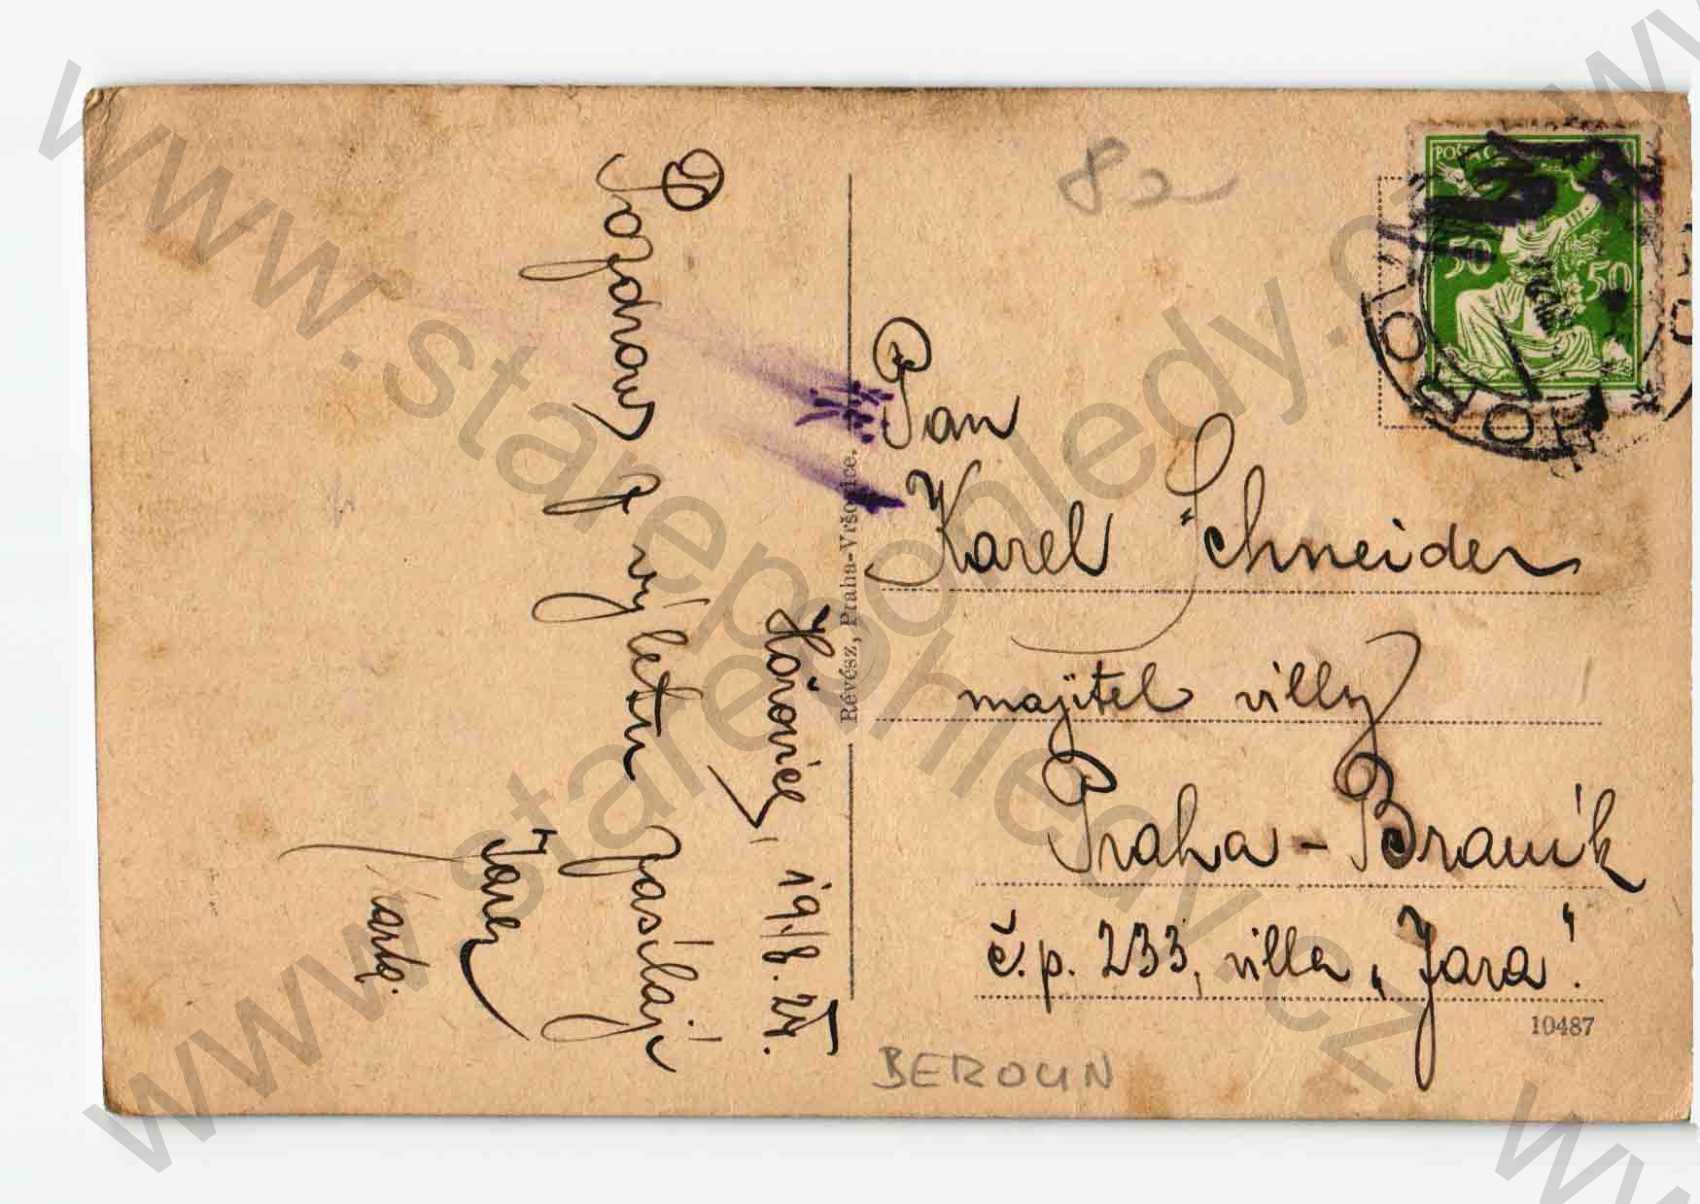 Hořovice, 19/8. 24.
Pozdrav z výletu zasílají
Jarek
Karla.
Révész, Praha-Vršovice.
82
POŠTA
50 50
HOŘOVI
Pan
Karel Schneider
majitel villy
Praha - Braník
č.p. 233, villa „Jara".
10487
BEROUN
www.starepohledy.cz
www.starepohledy.cz